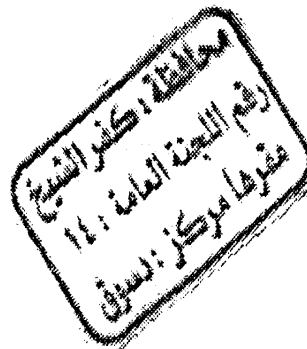 محافظة : كفر الشيخ
رقم اللجنة العامة : ١٤
مقرها مركز : دسوق